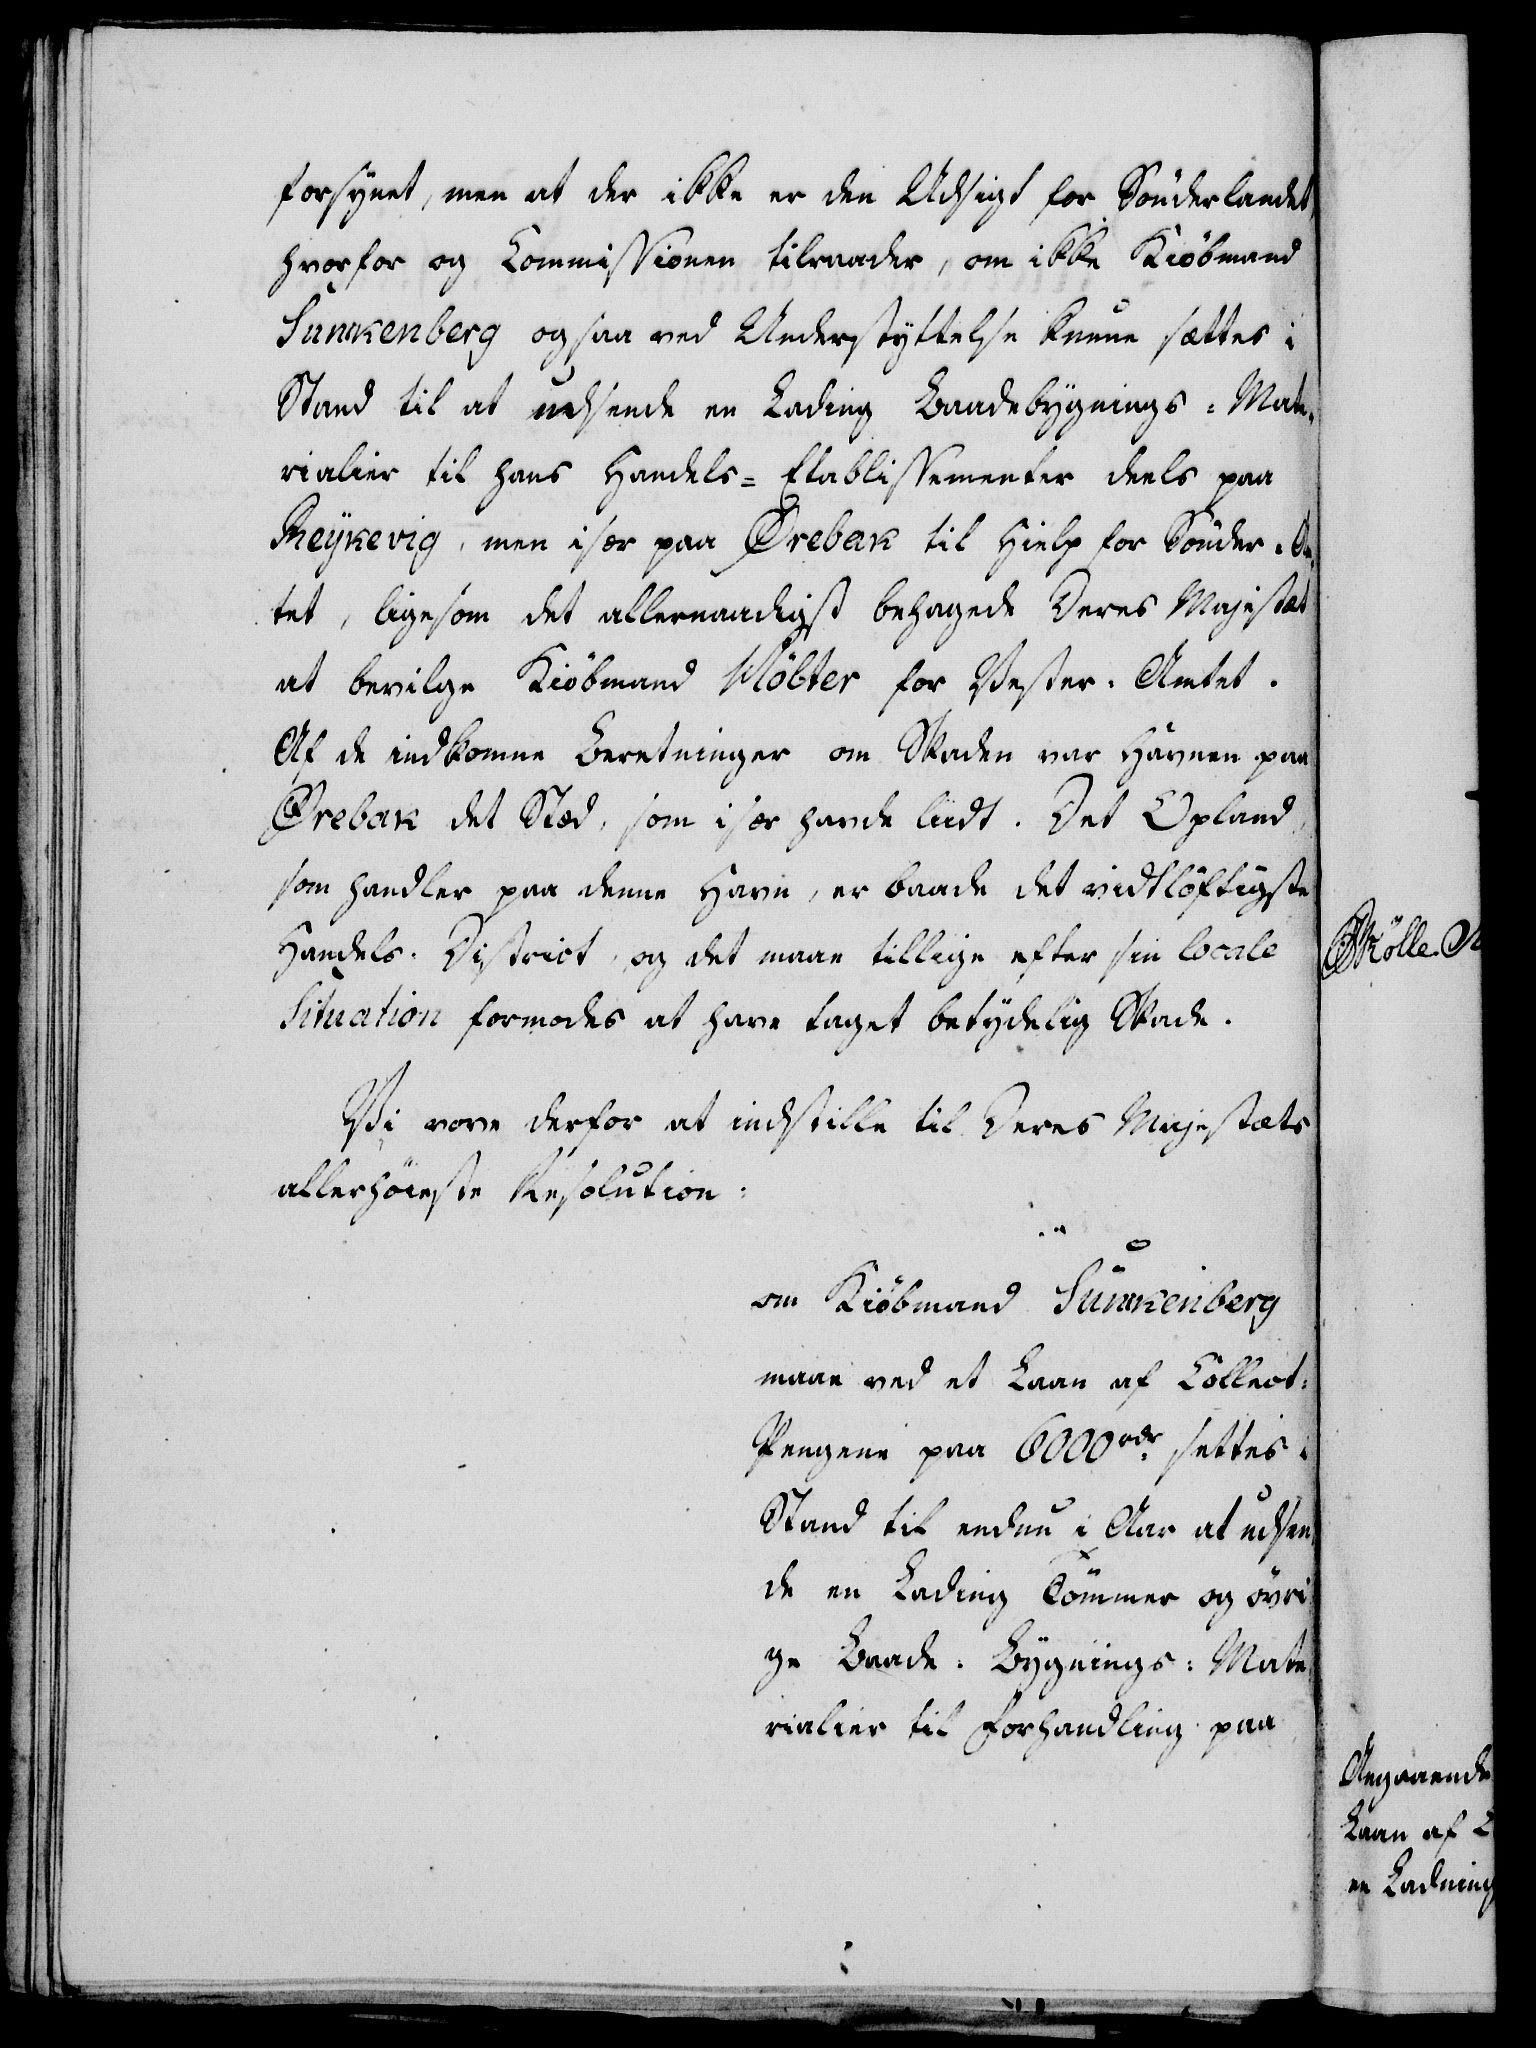 forsynet, men at der ikke er den Udsigt for Sönderlandet,
hvorfor og Commissionen tilraader, om ikke Kiöbmand
Sunkenberg ogsaa ved Understyttelse kunne sættes i
Stand til at udsende en Lading Baadebygnings-Mate-
rialier til hans Handels-Etablissementer deels paa
Reykevig, men især paa Örebak til Hielp for Sönder-Am-
tet, ligesom det allernaadigst behagede Deres Majestæt
at bevilge Kiöbmand Möbter for Vester-Amtet.
Af de indkomne Beretninger om Skaden var Havnen paa
Örebak det Stæd, som især havde liidt. Det Opland,
som handler paa denne Havn, er baade det vidtlöftigste
Handels-District, og det maae tillige efter sin locale
Situation formodes at have taget betydelig Skade.
Vi vove derfor at indstille til Deres Majestæts
allerhöieste Resolution:
om Kiöbmand Sunkenberg
maae ved et Laan af Collect-
Pengene paa 6000 rdr. settes i
Stand til endnu i Aar at udsen
de en Lading Tömmer og övri
ge Baade-Bygnings-Mate
rialier til Forhandling paa
Mölle
Angaaende
Laan af
en Ladning